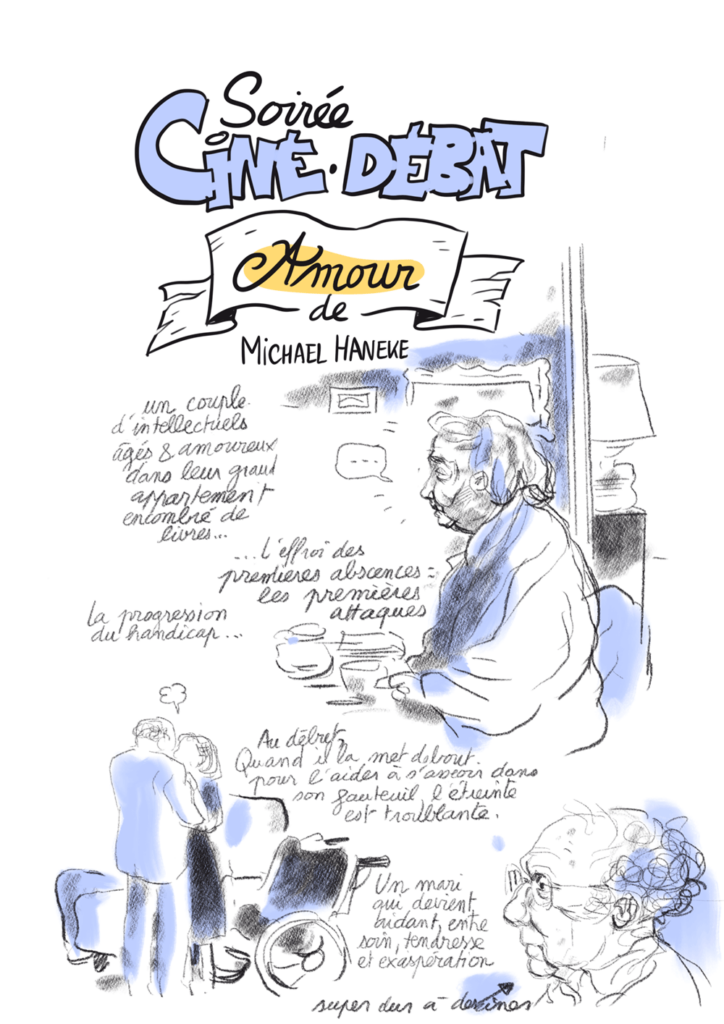 Soirée
CINÉ·DÉBAT
Amour
de
MICHAEL HANEKE
un couple
d'intellectuels
âgés & amoureux
dans leur grand
appartement
encombré de
livres...
...
...L'effroi des
premières abscences :
les premières
attaques
la progression
du handicap...
Au début,
Quand il la met debout
pour l'aider à s'asseoir dans
son fauteuil, l'étreinte
est troublante.
Un mari
qui devient
aidant, entre
soin, tendresse
et exaspération
super dur à dessiner